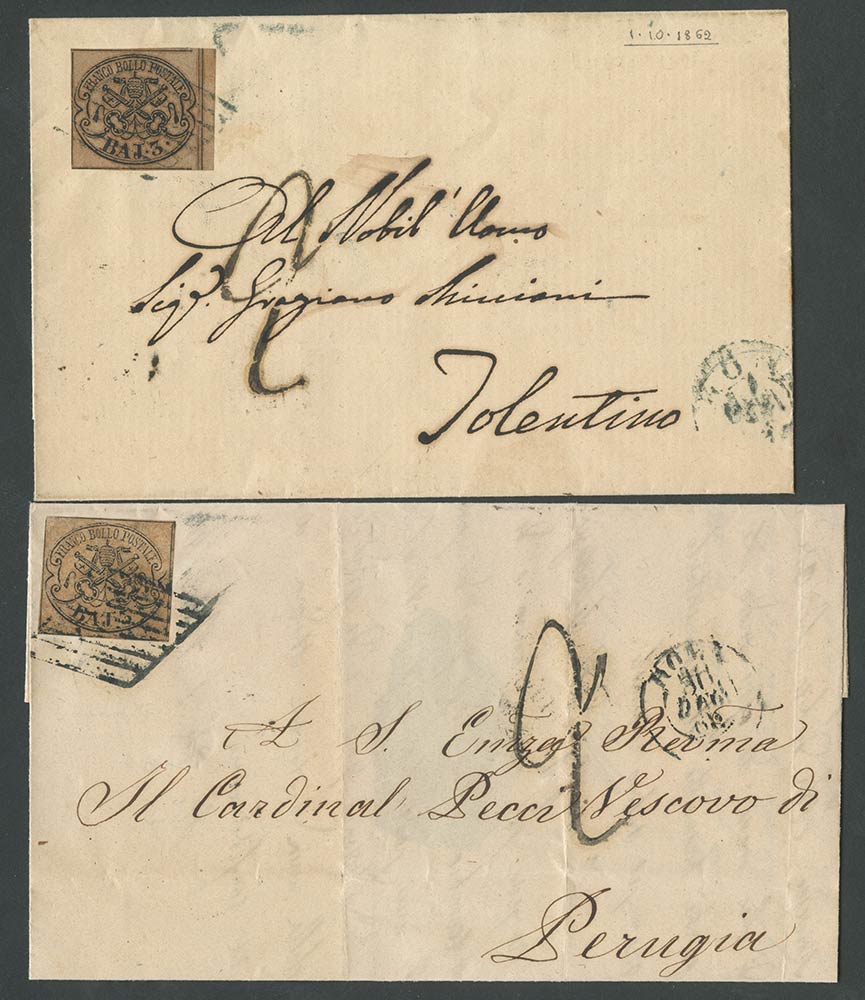 1.10.1862
FRANCO BOLLO POSTALE
BAJ.3.
Al Nobil' Uomo
Sigr. Graziano
Tolentino
ROMA
FRANCO BOLLO POSTALE
BAJ.3.
ROMA
A S. Emza Revma
Il Cardinal Pecci Vescovo di
Perugia